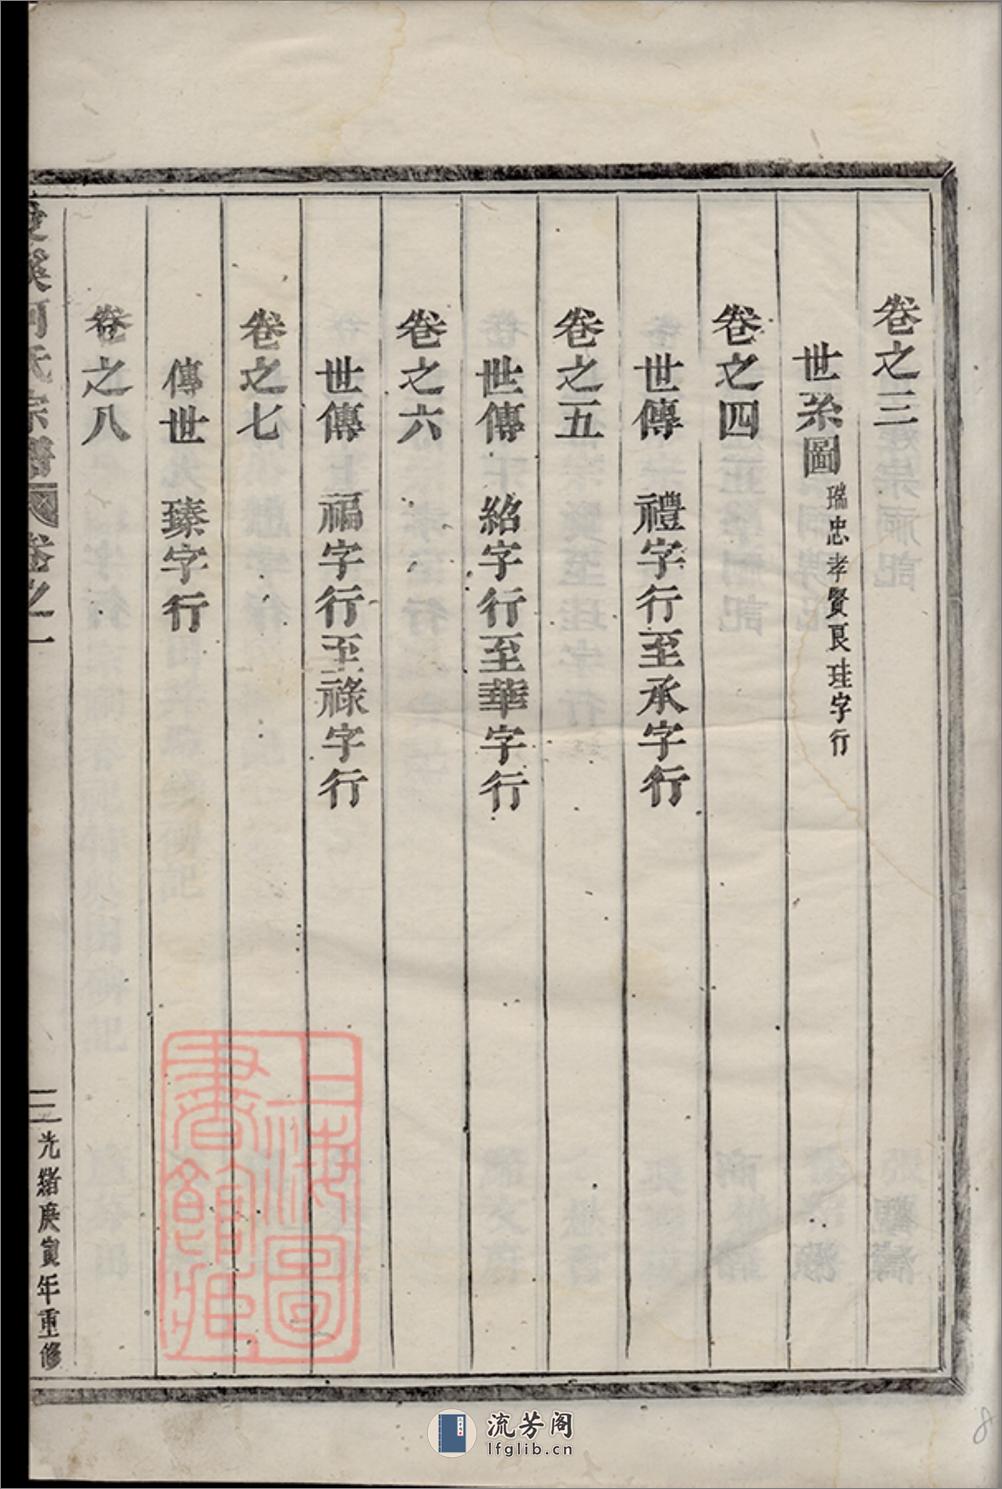 卷之三
世系圖 瑞忠孝賢良珪字行
卷之四
世傳 禮字行至承字行
卷之五
世傳 紹字行至華字行
卷之六
世傳 福字行至祿字行
卷之七
傳世 臻字行
卷之八
溪何氏宗譜 卷之一
三 光緒庚寅年重修
上海圖書館藏
流芳阁
lfglib.cn
8